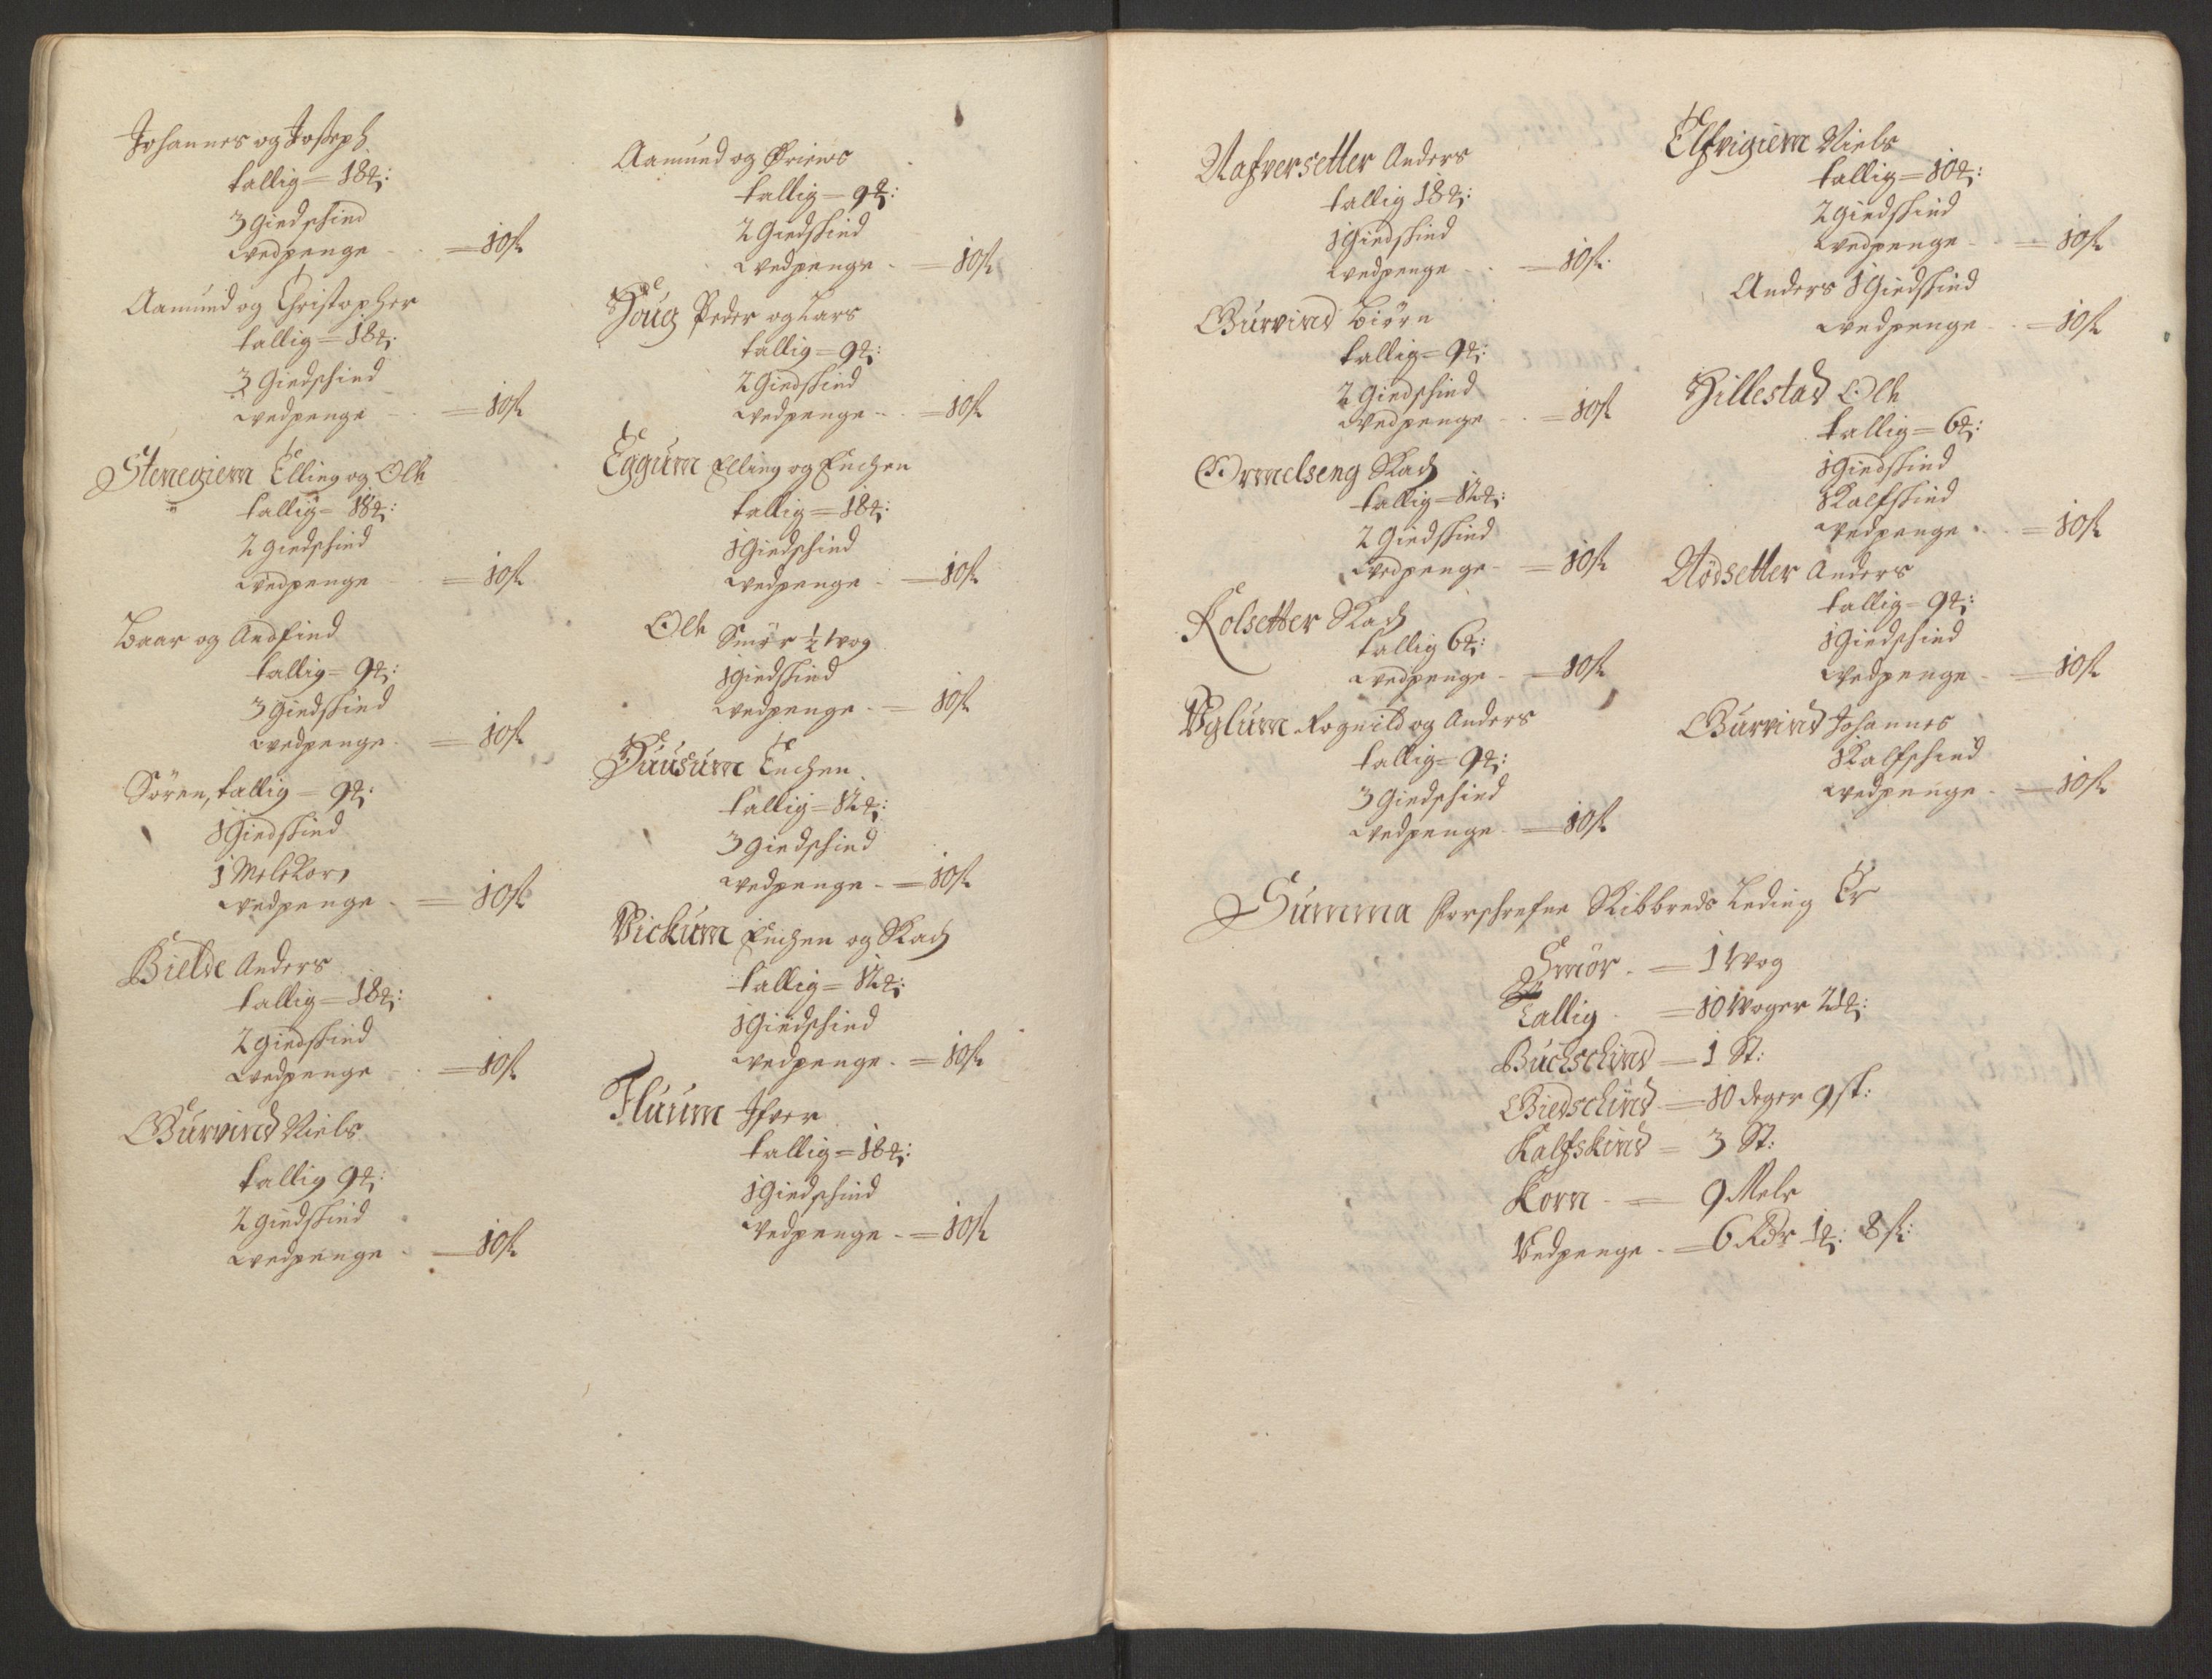 Johannes og Joseph
tallig = 18 ℔:
3 Giedschind
wedpenge - . = 10 ß
Aamund og Christopher
tallig = 18 ℔:
3 Giedschind
wedpenge - . = 10 ß
Stenegiem Elling og Olle
tallig = 18 ℔:
2 giedschind
wedpenge . = 10 ß
Baar og Andfind
tallig = 9 ℔:
3 Giedskind
wedpenge . = 10 ß
Sören, tallig = 9 ℔:
1 Giedskind
1 Mele Korn
wedpenge . = 10 ß
Bielde Anders
tallig = 18 ℔:
2 giedskind
wedpenge . = 10 ß
Gurvind Niels
tallig 9 ℔:
2 giedskind
wedpenge . = 10 ß
Aamund og
tallig = 9 ℔:
2 Giedskind
wedpenge - = 10 ß
Houg Peder og Lars
tallig = 9 ℔:
2 Giedskind
wedpenge - . = 10 ß
Eggum Elling og Erichen
tallig = 18 ℔:
1 Giedschind
wedpenge - = 10 ß
Olle Smör ½ Wog
1 giedskind
wedpenge . = 10 ß
Huusum Erichen
tallig = 12 ℔:
3 giedschind
wedpenge - = 10 ß
Vickum Erichen og Mads
tallig = 12 ℔:
1 Giedschind
wedpenge . = 10 ß
Fluum Ifver
tallig = 18 ℔:
1 Giedschind
wedpenge - = 10 ß
Nafversetter Anders
tallig 18 ℔:
1 Giedskind
wedpenge . = 10 ß
Gurvind Biörn
tallig = 9 ℔:
2 Giedschind
wedpenge - . = 10 ß
Ormelseng Mads
tallig = 12 ℔:
2 Giedskind
wedpenge - = 10 ß
Kolsetter Mads
tallig 6 ℔:
wedpenge - = 10 ß
Uglum Rognild og Anders
tallig = 9 ℔:
3 Giedschind
wedpenge - = 10 ß
Elfvigiem Niels
tallig = 10 ℔:
2 giedskind
wedpenge - . = 10 ß
Anders 1 Giedskind
wedpenge . = 10 ß
Hillestad Olle
tallig = 6 ℔:
1 Giedskind
1 Kalfskind
wedpenge . = 10 ß
Nödsetter Anders
tallig = 9 ℔:
1 Giedschind
wedpenge - = 10 ß
Gurvind Johannes
1 Kalfschind
wedpenge - = 10 ß
Summa Forschrefne Skibbreds Leding Er
Smör . = 1 Wog
Tallig . = 10 Woger 21 ℔:
Buchschind = 1 St:
Giedschind = 10 deger 9 st:
Kalfskind = 3 St:
Korn - = 9 Mele
Vedpenge - = 6 Rdr 1 ℔: 8 ß: